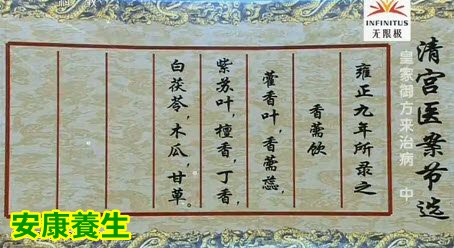 INFINITUS
无限极
清宫医案节选
皇家御方来治病·中
雍正九年所录之
香薷饮
藿香叶，香薷蕊，
紫苏叶，檀香，丁香，
白茯苓，木瓜，甘草。
安康養生